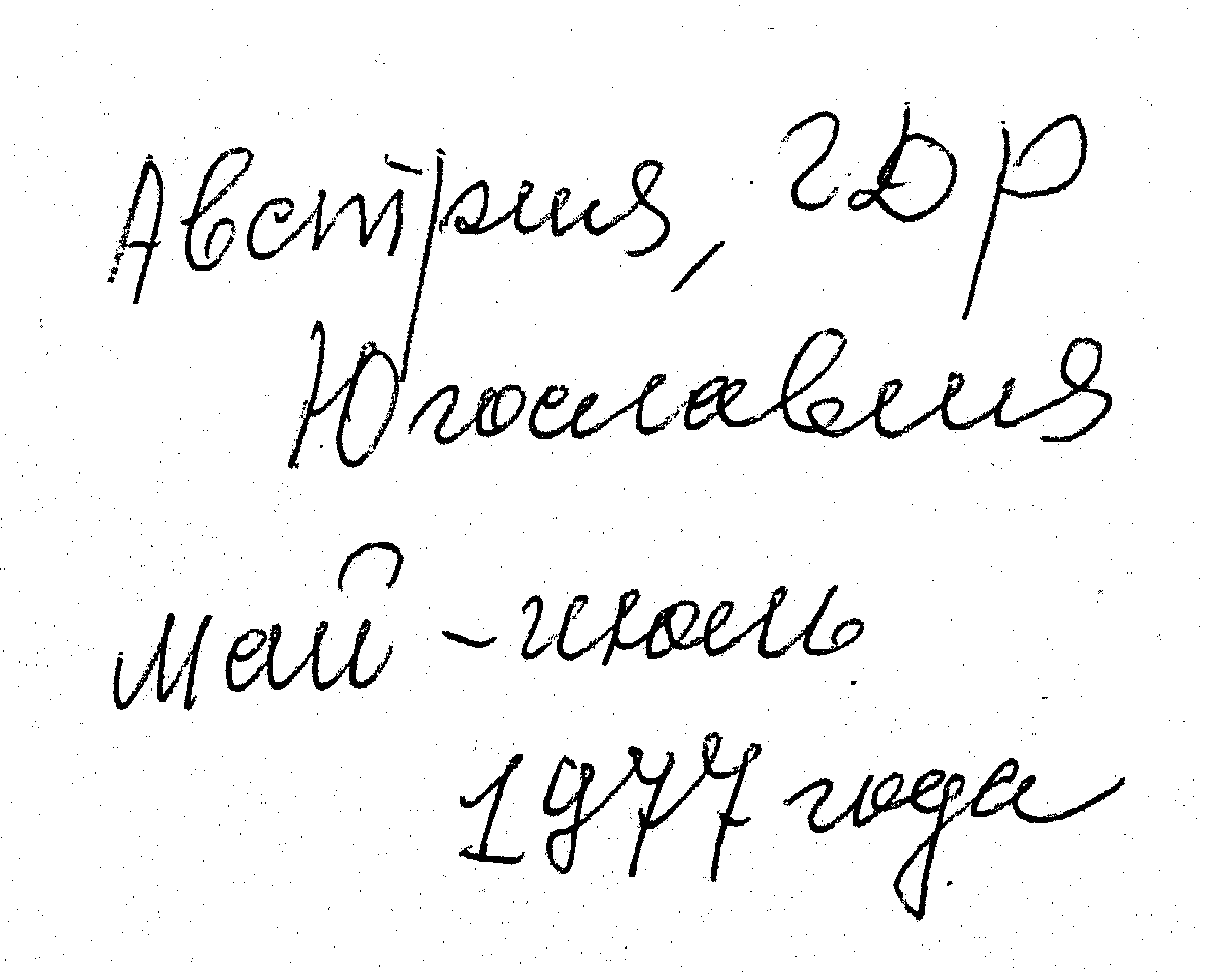 Австрия, ГДР
Югославия
Май - июль
1977 года